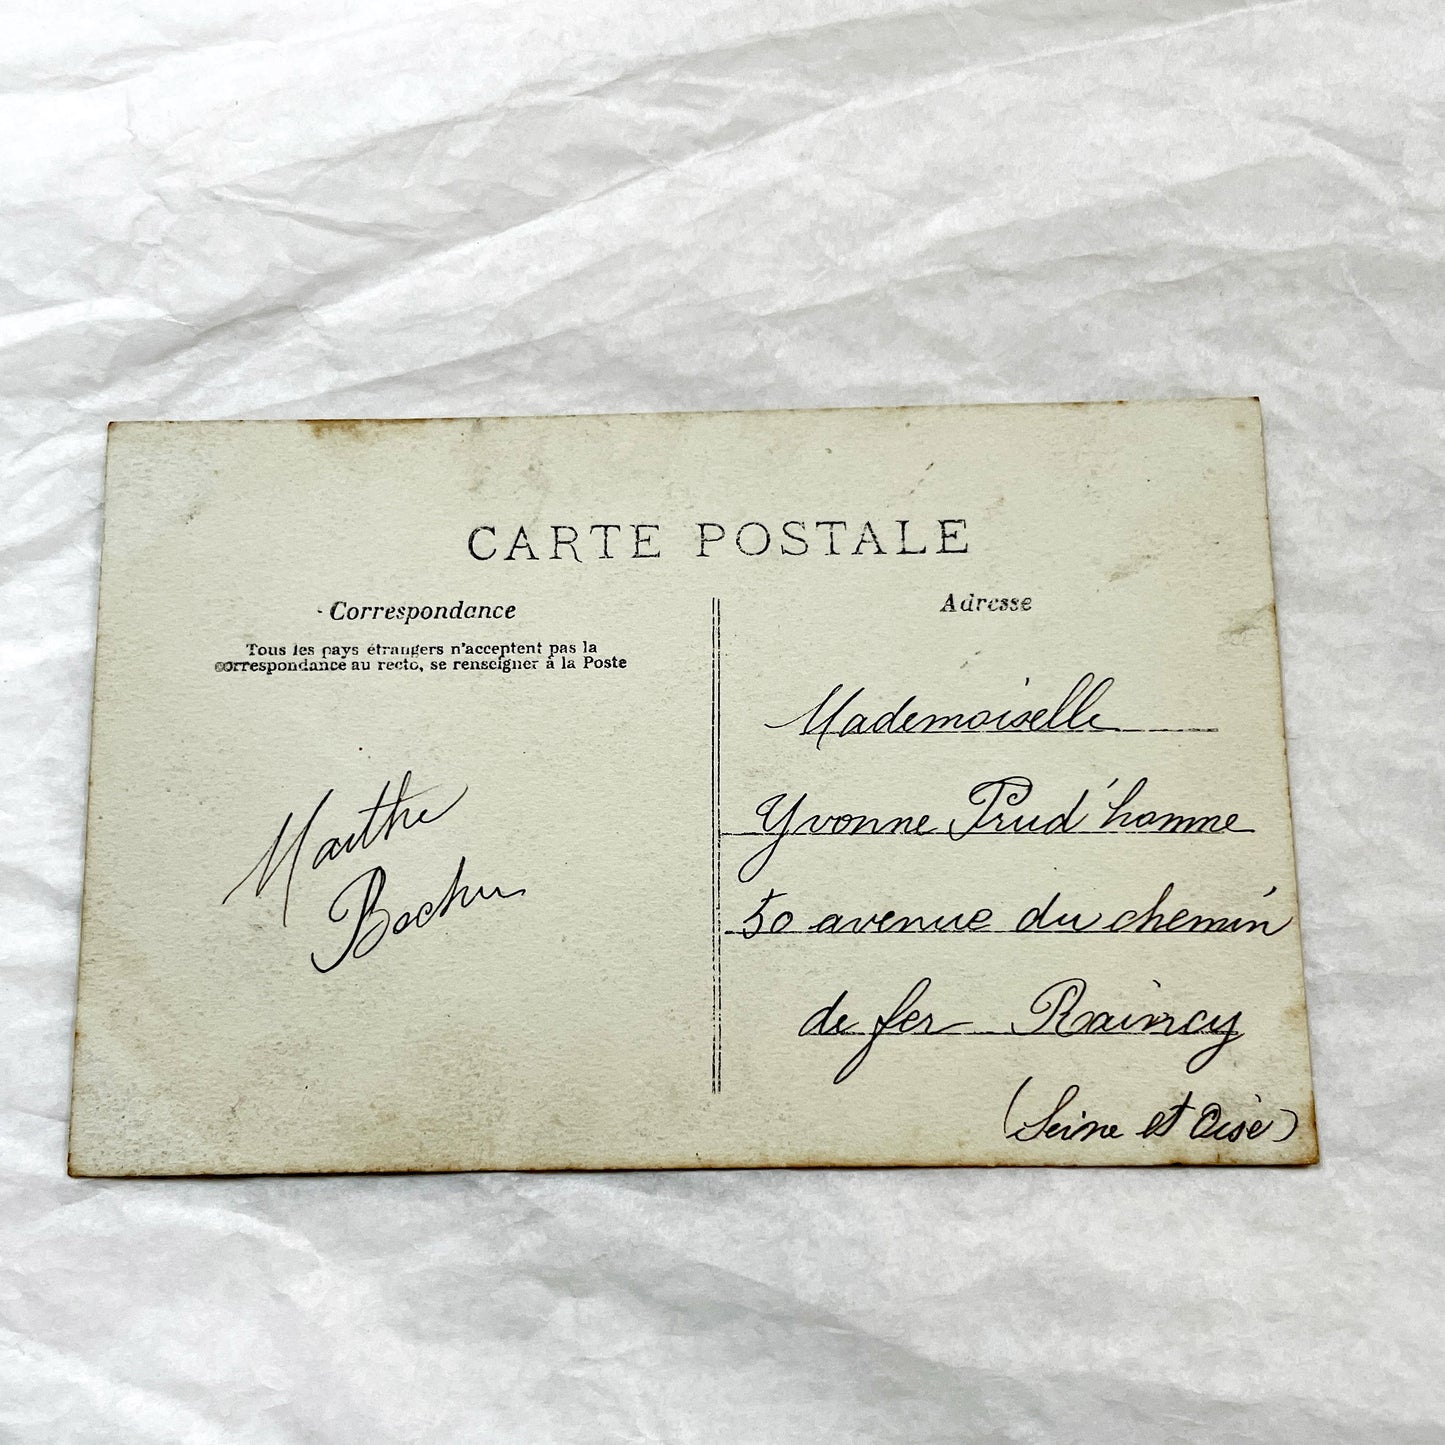 CARTE POSTALE
Correspondance
Tous les pays étrangers n'acceptent pas la
correspondance au recto, se renseigner à la Poste
Marthe
Adresse
Mademoiselle
Yvonne Prud'homme
50 avenue du chemin
de fer Raincy
(Seine et Oise)